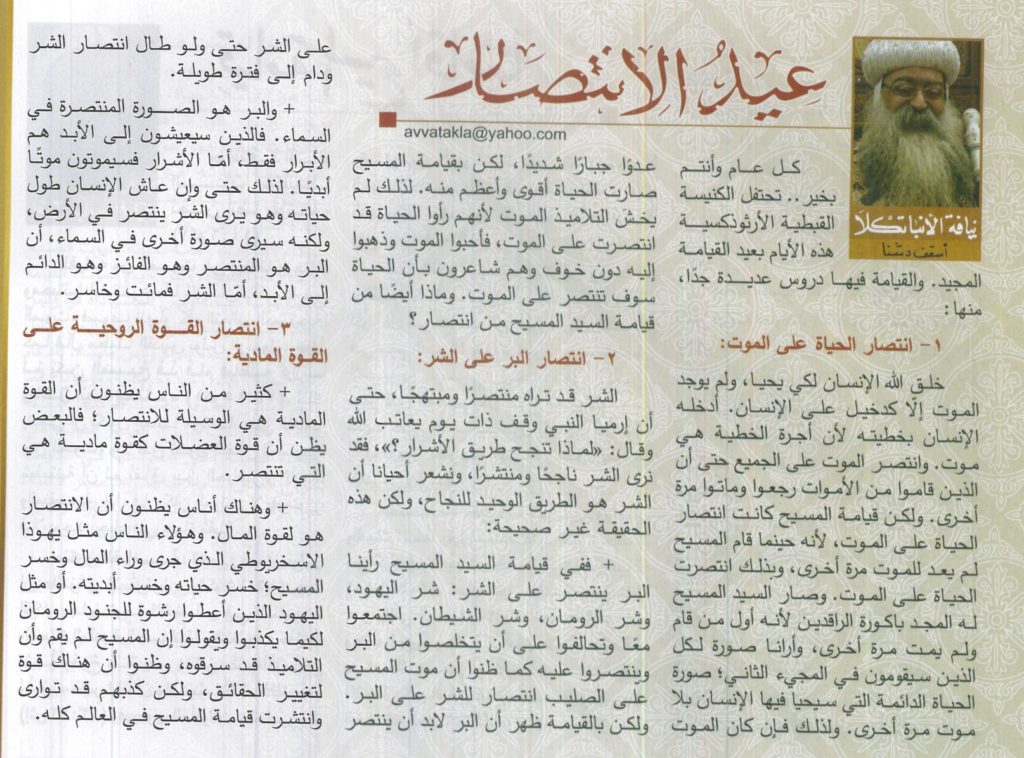 عيد الانتصار
avvatakla@yahoo.com
نيافة الأنبا تكلا
أسقف دشنا
كل عام وأنتم
بخير .. تحتفل الكنيسة
القبطية الأرثوذكسية
هذه الأيام بعيد القيامة
المجيد. والقيامة فيها دروس عديدة جدًا،
منها:
١- انتصار الحياة على الموت:
خلق الله الإنسان لكي يحيا، ولم يوجد
الموت إلّا كدخيل على الإنسان. أدخله
الإنسان بخطيته لأن أجرة الخطية هي
موت. وانتصر الموت على الجميع حتى أن
الذين قاموا من الأموات رجعوا وماتوا مرة
أخرى. ولكن قيامة المسيح كانت انتصار
الحياة على الموت، لأنه حينما قام المسيح
لم يعد للموت مرة أخرى، وبذلك انتصرت
الحياة على الموت. وصار السيد المسيح
له المجد باكورة الراقدين لأنه أول من قام
ولم يمت مرة أخرى، وأرانا صورة لكل
الذين سيقومون في المجيء الثاني؛ صورة
الحياة الدائمة التي سيحيا فيها الإنسان بلا
موت مرة أخرى. ولذلك فإن كان الموت
عدوًا جبارًا شديدًا، لكن بقيامة المسيح
صارت الحياة أقوى وأعظم منه. لذلك لم
يخش التلاميذ الموت لأنهم رأوا الحياة قد
انتصرت على الموت، فأحبوا الموت وذهبوا
إليه دون خوف وهم شاعرون بأن الحياة
سوف تنتصر على الموت. وماذا أيضًا من
قيامة السيد المسيح من انتصار؟
٢- انتصار البر على الشر:
الشر قد تراه منتصرًا ومبتهجًا، حتى
أن إرميا النبي وقف ذات يوم يعاتب الله
وقال: «لماذا تنجح طريق الأشرار؟»، فقد
نرى الشر ناجحًا ومنتشرًا، ونشعر أحيانا أن
الشر هو الطريق الوحيد للنجاح، ولكن هذه
الحقيقة غير صحيحة:
+ ففي قيامة السيد المسيح رأينا
البر ينتصر على الشر: شر اليهود،
وشر الرومان، وشر الشيطان. اجتمعوا
معًا وتحالفوا على أن يتخلصوا من البر
وينتصروا عليه كما ظنوا أن موت المسيح
على الصليب انتصار للشر على البر.
ولكن بالقيامة ظهر أن البر لابد أن ينتصر
على الشر حتى ولو طال انتصار الشر
ودام إلى فترة طويلة.
+ والبر هو الصورة المنتصرة في
السماء. فالذين سيعيشون إلى الأبد هم
الأبرار فقط، أمّا الأشرار فسيموتون موتًا
أبديًا. لذلك حتى وإن عاش الإنسان طول
حياته وهو يرى الشر ينتصر في الأرض،
ولكنه سيرى صورة أخرى في السماء، أن
البر هو المنتصر وهو الفائز وهو الدائم
إلى الأبد، أمّا الشر فمائت وخاسر.
٣- انتصار القوة الروحية على
القوة المادية:
+ كثير من الناس يظنون أن القوة
المادية هي الوسيلة للانتصار؛ فالبعض
يظن أن قوة العضلات كقوة مادية هي
التي تنتصر.
+ وهناك أناس يظنون أن الانتصار
هو لقوة المال. وهؤلاء الناس مثل يهوذا
الاسخريوطي الذي جرى وراء المال وخسر
المسيح؛ خسر حياته وخسر أبديته. أو مثل
اليهود الذين أعطوا رشوة للجنود الرومان
لكيما يكذبوا ويقولوا إن المسيح لم يقم وأن
التلاميذ قد سرقوه، وظنوا أن هناك قوة
لتغيير الحقائق، ولكن كذبهم قد توارى
وانتشرت قيامة المسيح في العالم كله.